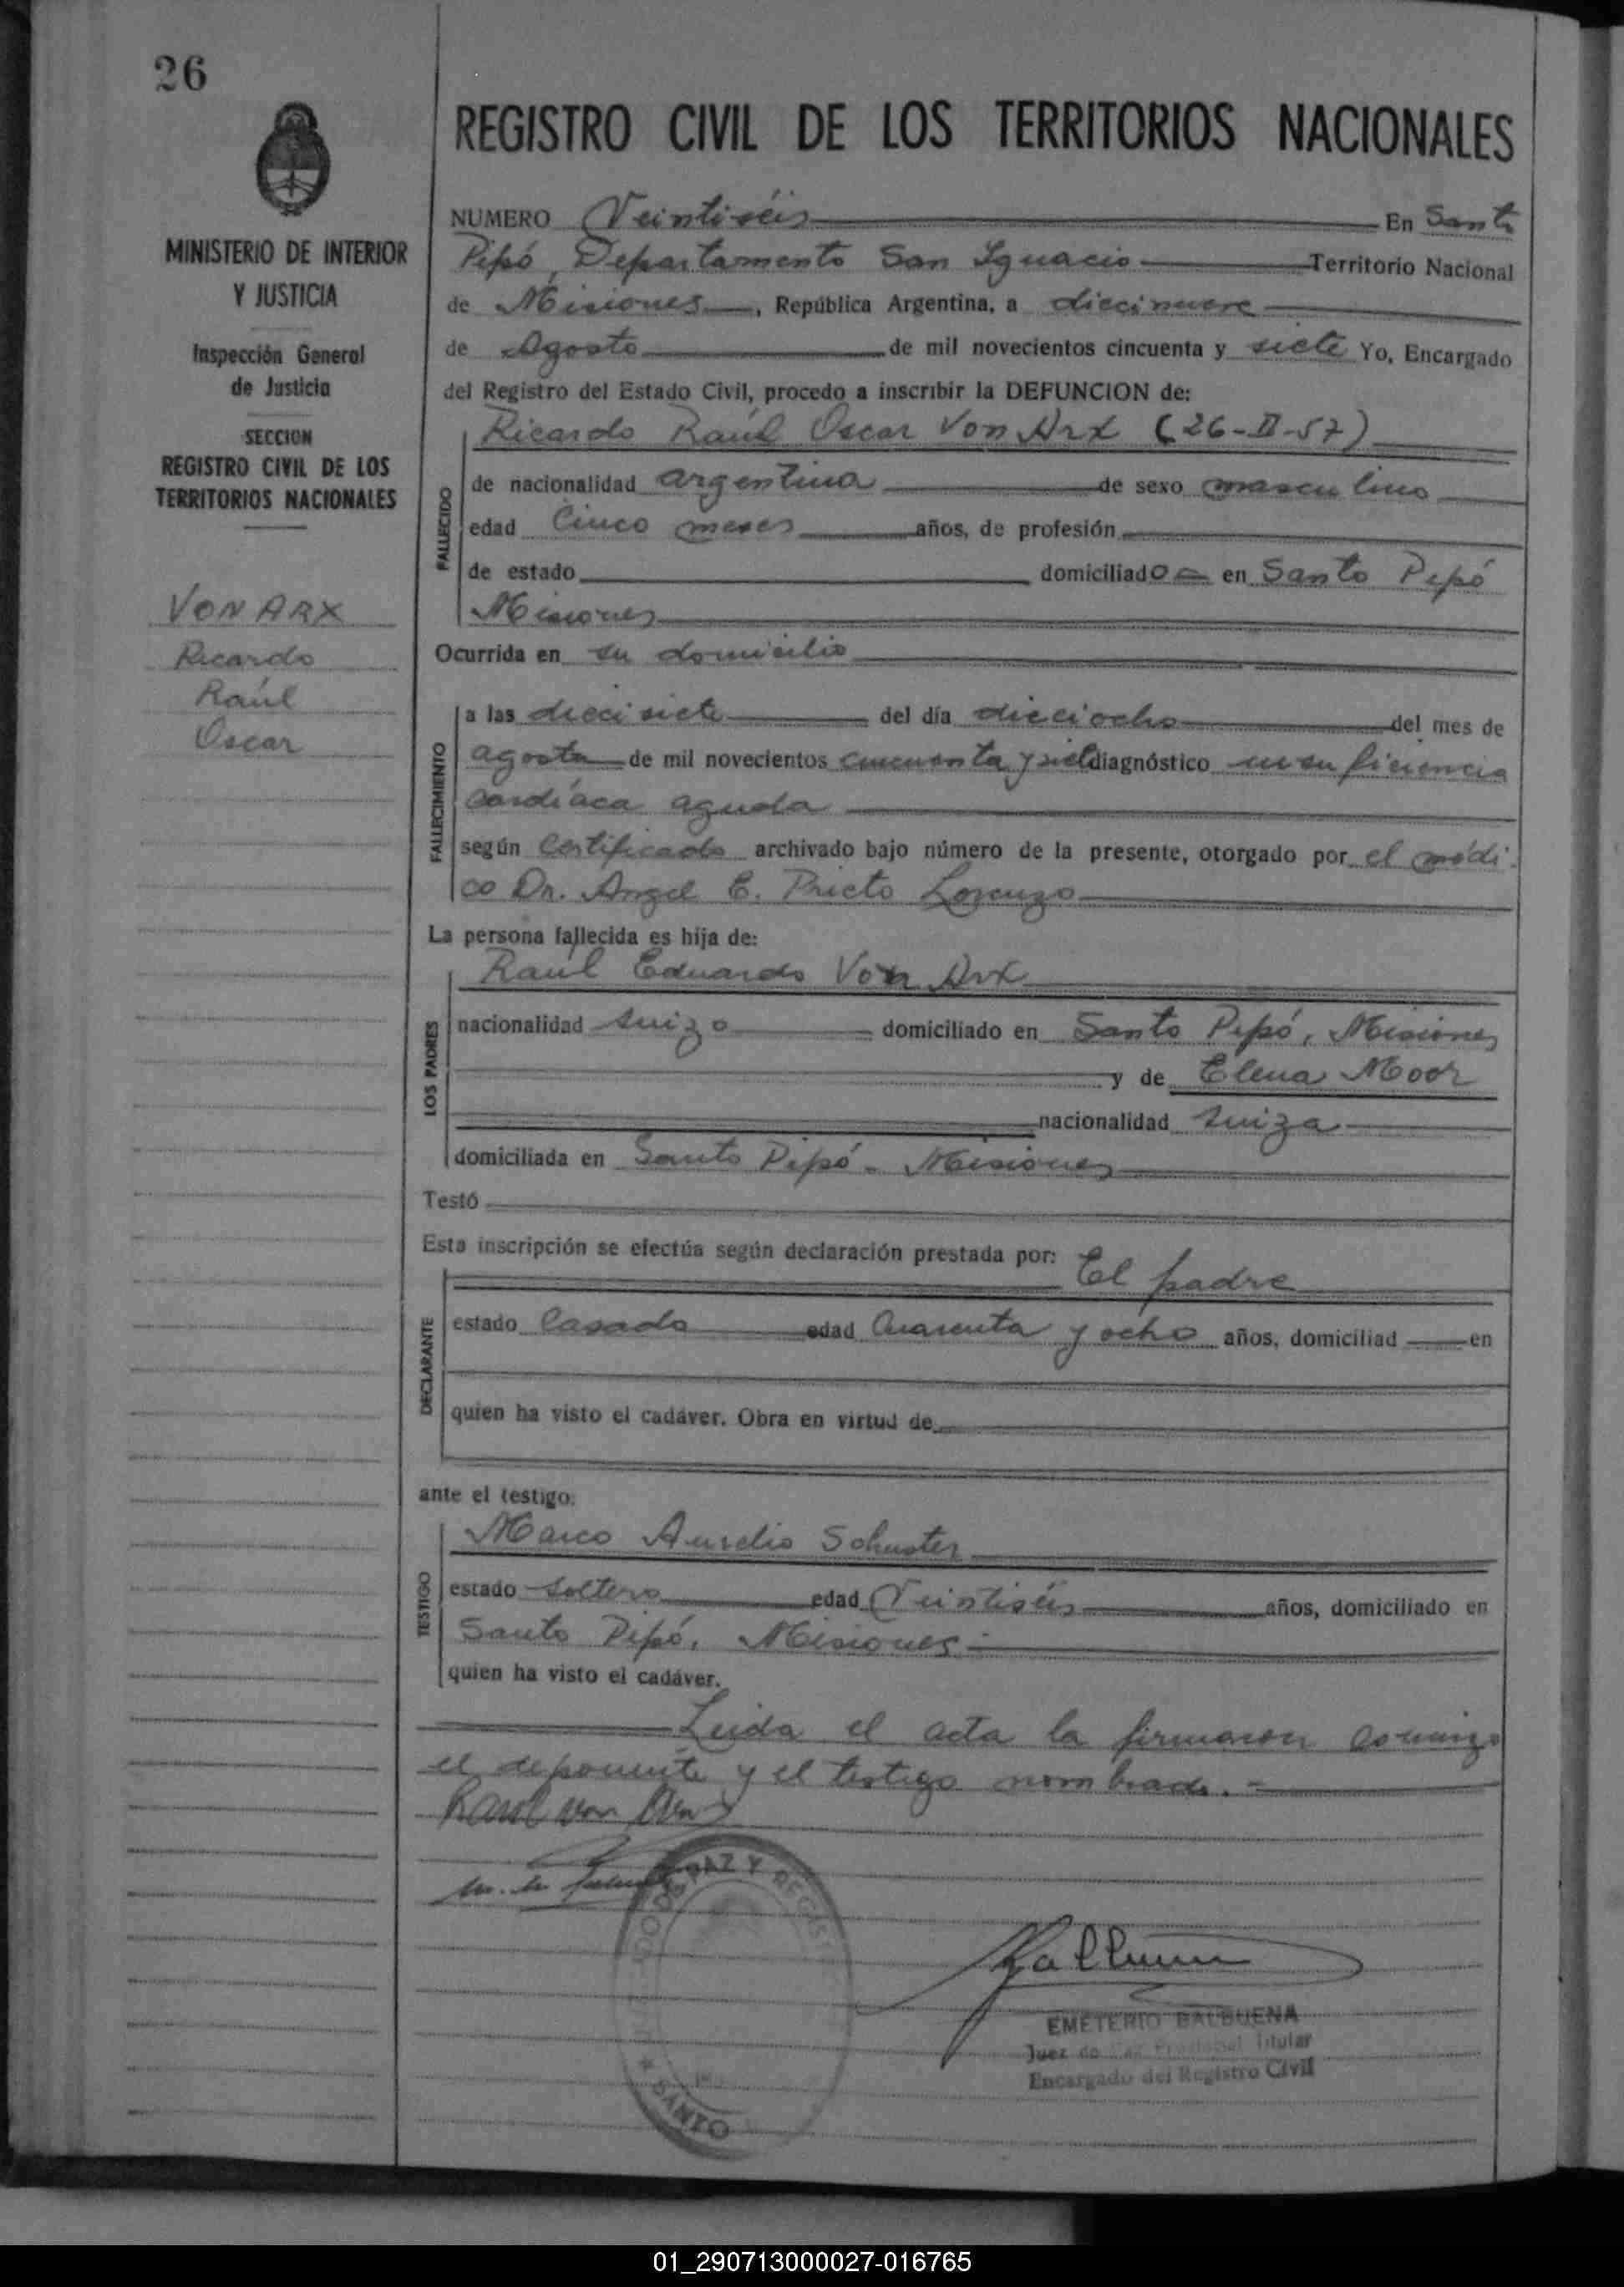 26
MINISTERIO DE INTERIOR
Y JUSTICIA
Inspección General
de Justicia
SECCION
REGISTRO CIVIL DE LOS
TERRITORIOS NACIONALES
VON ARX
Ricardo
Raúl
Oscar
REGISTRO CIVIL DE LOS TERRITORIOS NACIONALES
NUMERO Veintiséis En Santo
Pipó, Departamento San Ignacio Territorio Nacional
de Misiones, República Argentina, a diecinueve
de Agosto de mil novecientos cincuenta y siete Yo, Encargado
del Registro del Estado Civil, procedo a inscribir la DEFUNCION de:
Ricardo Raúl Oscar Von Arx (26-II-57)
FALLECIDO
de nacionalidad argentina de sexo masculino
edad Cinco meses años, de profesión
de estado domiciliado en Santo Pipó
Misiones
Ocurrida en su domicilio
FALLECIMIENTO
a las diecisiete del día dieciocho del mes de
agosto de mil novecientos cincuenta y siete diagnóstico insuficiencia
cardíaca aguda
según Certificado archivado bajo número de la presente, otorgado por el médi-
co Dr. Angel E. Prieto Lorenzo
La persona fallecida es hija de:
LOS PADRES
Raúl Eduardo Von Arx
nacionalidad suizo domiciliado en Santo Pipó, Misiones
y de Elena Moor
nacionalidad suiza
domiciliada en Santo Pipó - Misiones
Testó
Esta inscripción se efectúa según declaración prestada por: El padre
DECLARANTE
estado Casado edad Cuarenta y ocho años, domiciliad en
quien ha visto el cadáver. Obra en virtud de
ante el testigo:
TESTIGO
Marco Aurelio Schuster
estado soltero edad Veintiséis años, domiciliado en
Santo Pipó, Misiones.-
quien ha visto el cadáver.
Leida el acta la firmaron conmigo
el deponente y el testigo nombrado.-
Raul von Arx
PAZ Y REGIST
SANTO
EMETERIO BALBUENA
Juez de Paz Titular
Encargado del Registro Civil
01_290713000027-016765